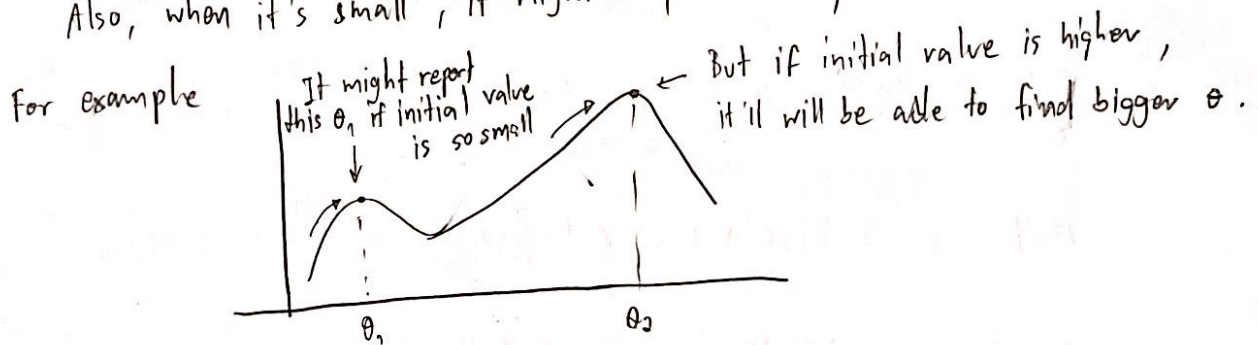 Also, when it's small, it
For example
It might report
this θ₁ if initial value
is so small
← But if initial value is higher,
it'll will be able to find bigger θ.
θ₁
θ₂